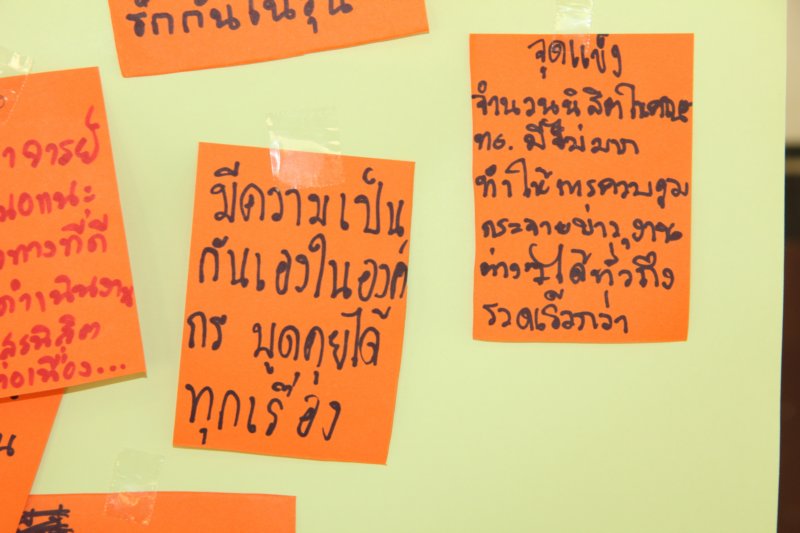 รักกันในรุ่น
อาจารย์
แนะ
ทางที่ดี
ดำเนินงาน
นิสิต
ต่อเนื่อง...
มีความเป็น
กันเองในองค์
กร พูดคุยได้
ทุกเรื่อง
จุดแข็ง
จำนวนนิสิตในคณะ
ทจ. มีไม่มาก
ทำให้การควบคุม
กระจายข่าว, งาน
ต่างๆ ได้ทั่วถึง
รวดเร็วกว่า